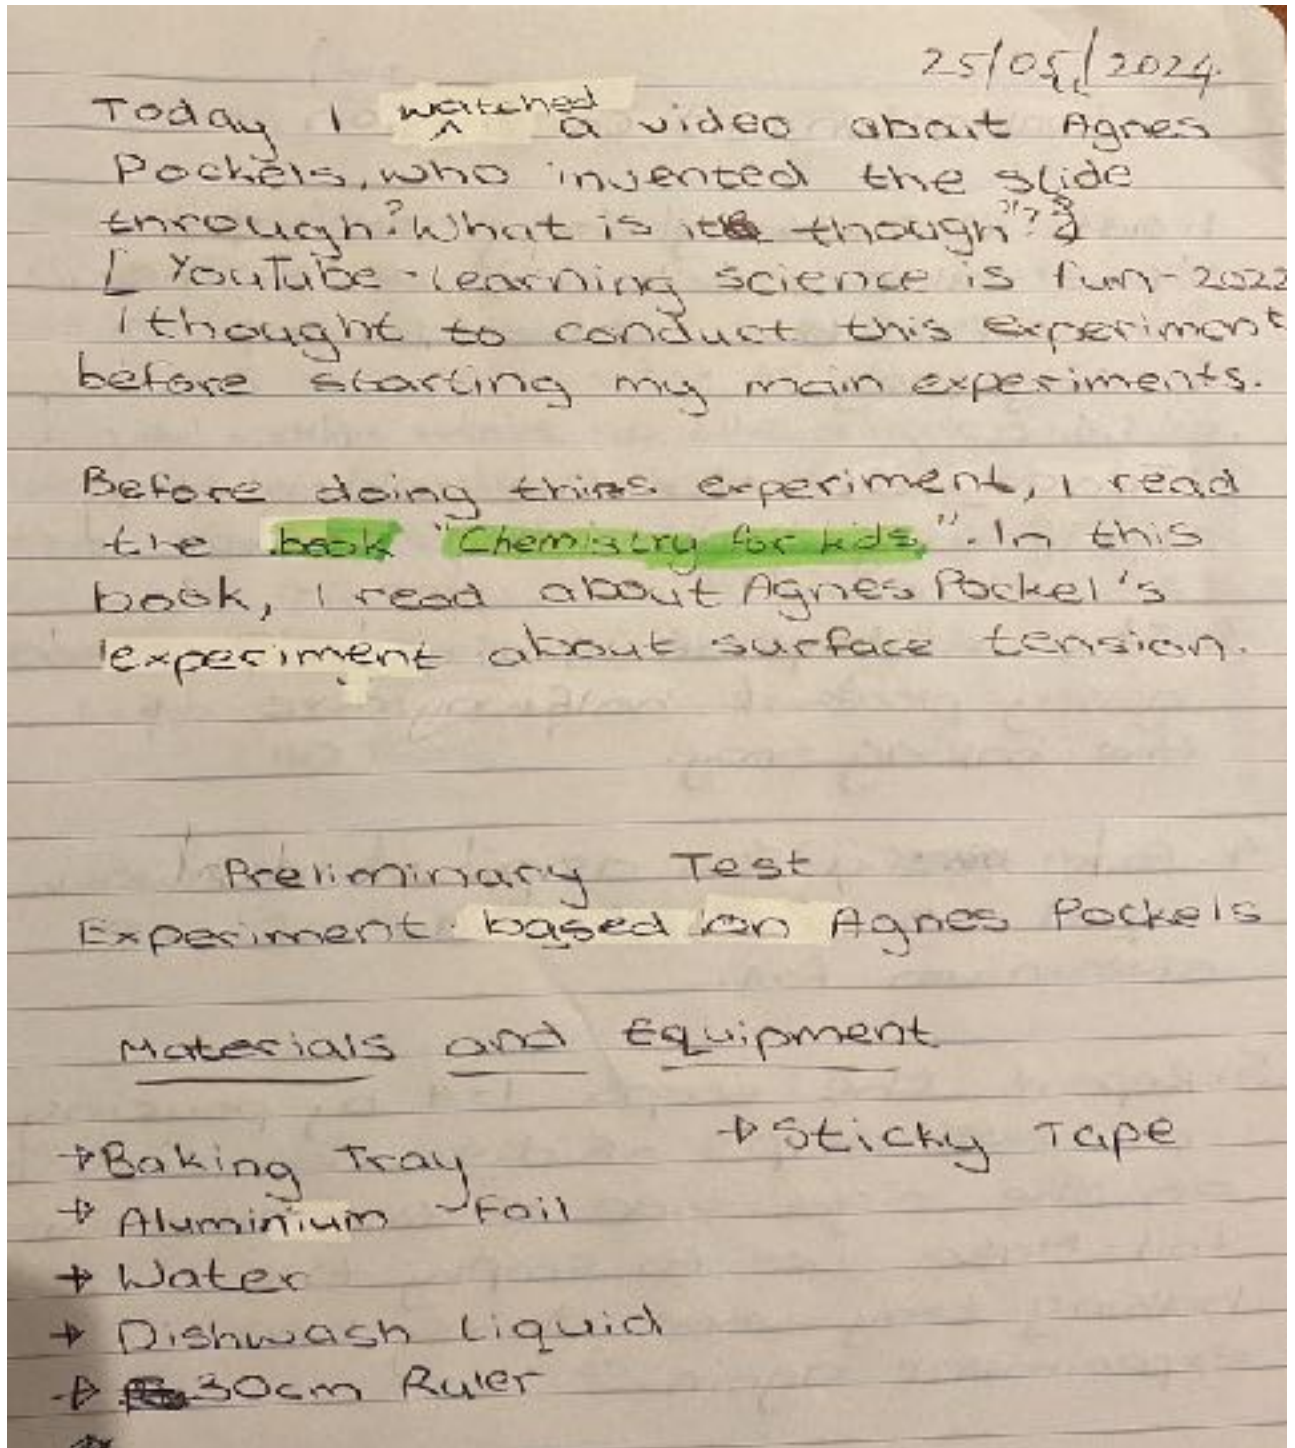 25/05/2024
Today I watched a video about Agnes
Pockels, who invented the slide
through? What is it though"?
[ YouTube - Learning science is fun - 2022
I thought to conduct this experiment
before starting my main experiments.
Before doing this experiment, I read
the book "Chemistry for kids". In this
book, I read about Agnes Pockel's
experiment about surface tension.
Preliminary Test
Experiment based on Agnes Pockels
Materials and Equipment
→ Sticky Tape
→ Baking Tray
→ Aluminium Foil
→ Water
→ Dishwash Liquid
→ 30cm Ruler